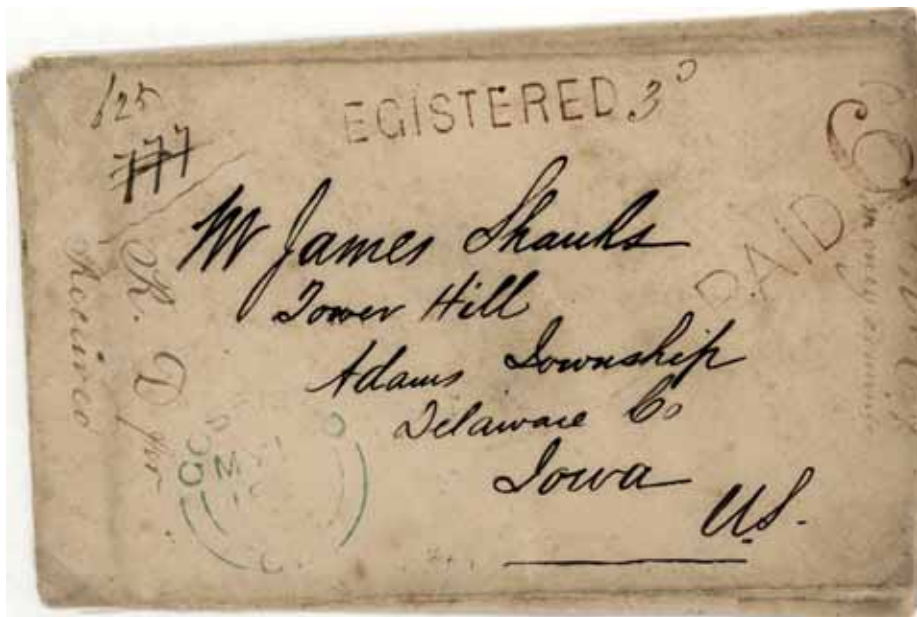 625
777
EGISTERED 3⁰
6
PAID
Mr James Shanks
Tower Hill
Adams Township
Delaware Co
Iowa
U.S.
Received